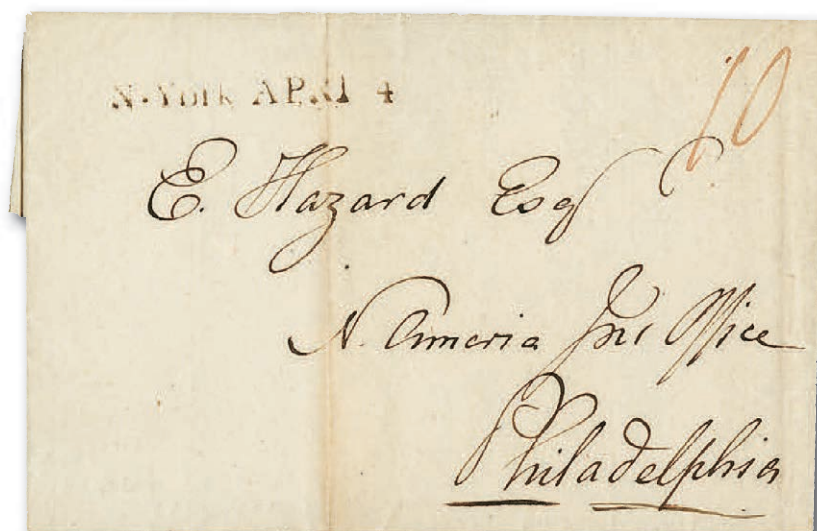 N-York APRI 4
10
E. Hazard Esqr
N. Ameria Ins Office
Philadelphia